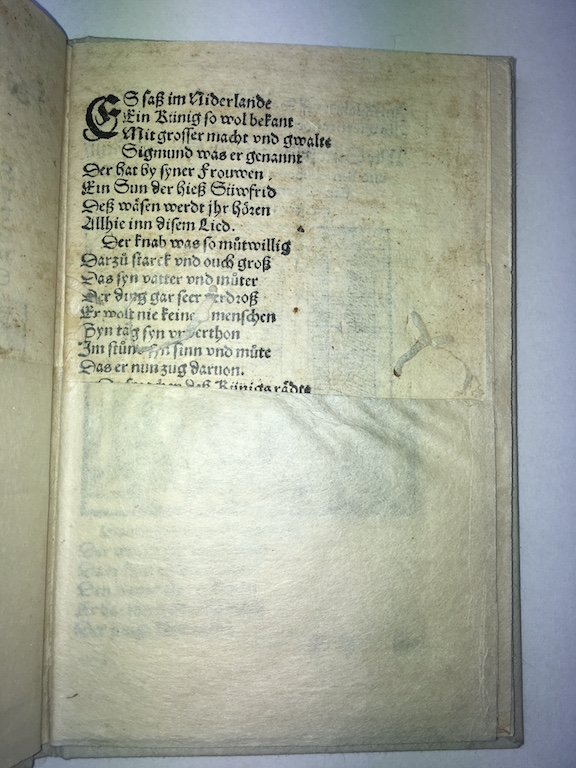 ES saß im Niderlande
Ein Künig so wol bekant
Mit grosser macht vnd gwalte
Sigmund was er genannt
Der hat by syner Frouwen
Ein Sun der hieß Süwfrid
Deß wäsen werdt jhr hören
Allhie inn disem Lied.
Der knab was so můtwillig
Darzů starck vnd ouch groß
Das syn vatter vnd můter
Der ding gar seer verdroß
Er wolt nie keine menschen
Syn tag syn vnderthon
Im stůnd syn sinn vnd můte
Das er nun zug daruon.
Do sprachen deß Künigs rädte